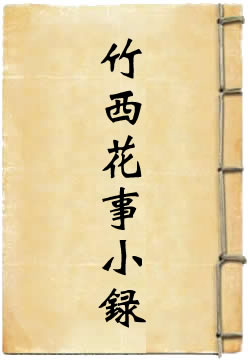 竹西花事小録